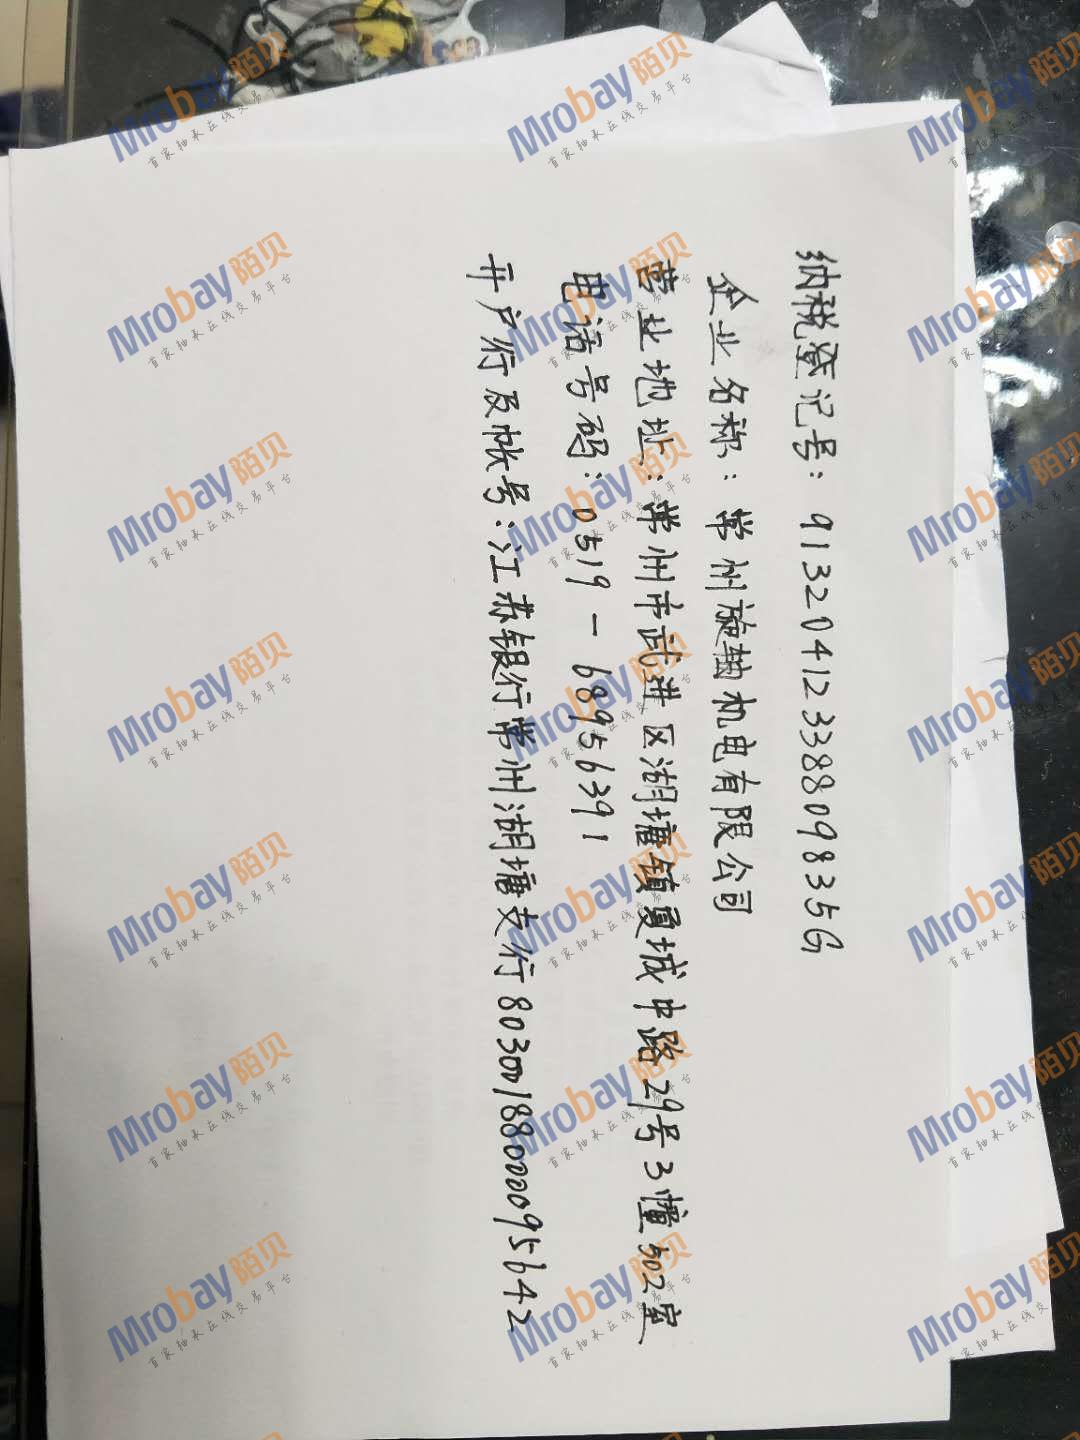 纳税登记号：91320412338809835G
企业名称：常州旋轴机电有限公司
营业地址：常州市武进区湖塘镇夏城中路29号3幢502室
电话号码：0519-68956391
开户行及帐号：江苏银行常州湖塘支行80300188000095642
Mrobay陌贝
首家轴承在线交易平台